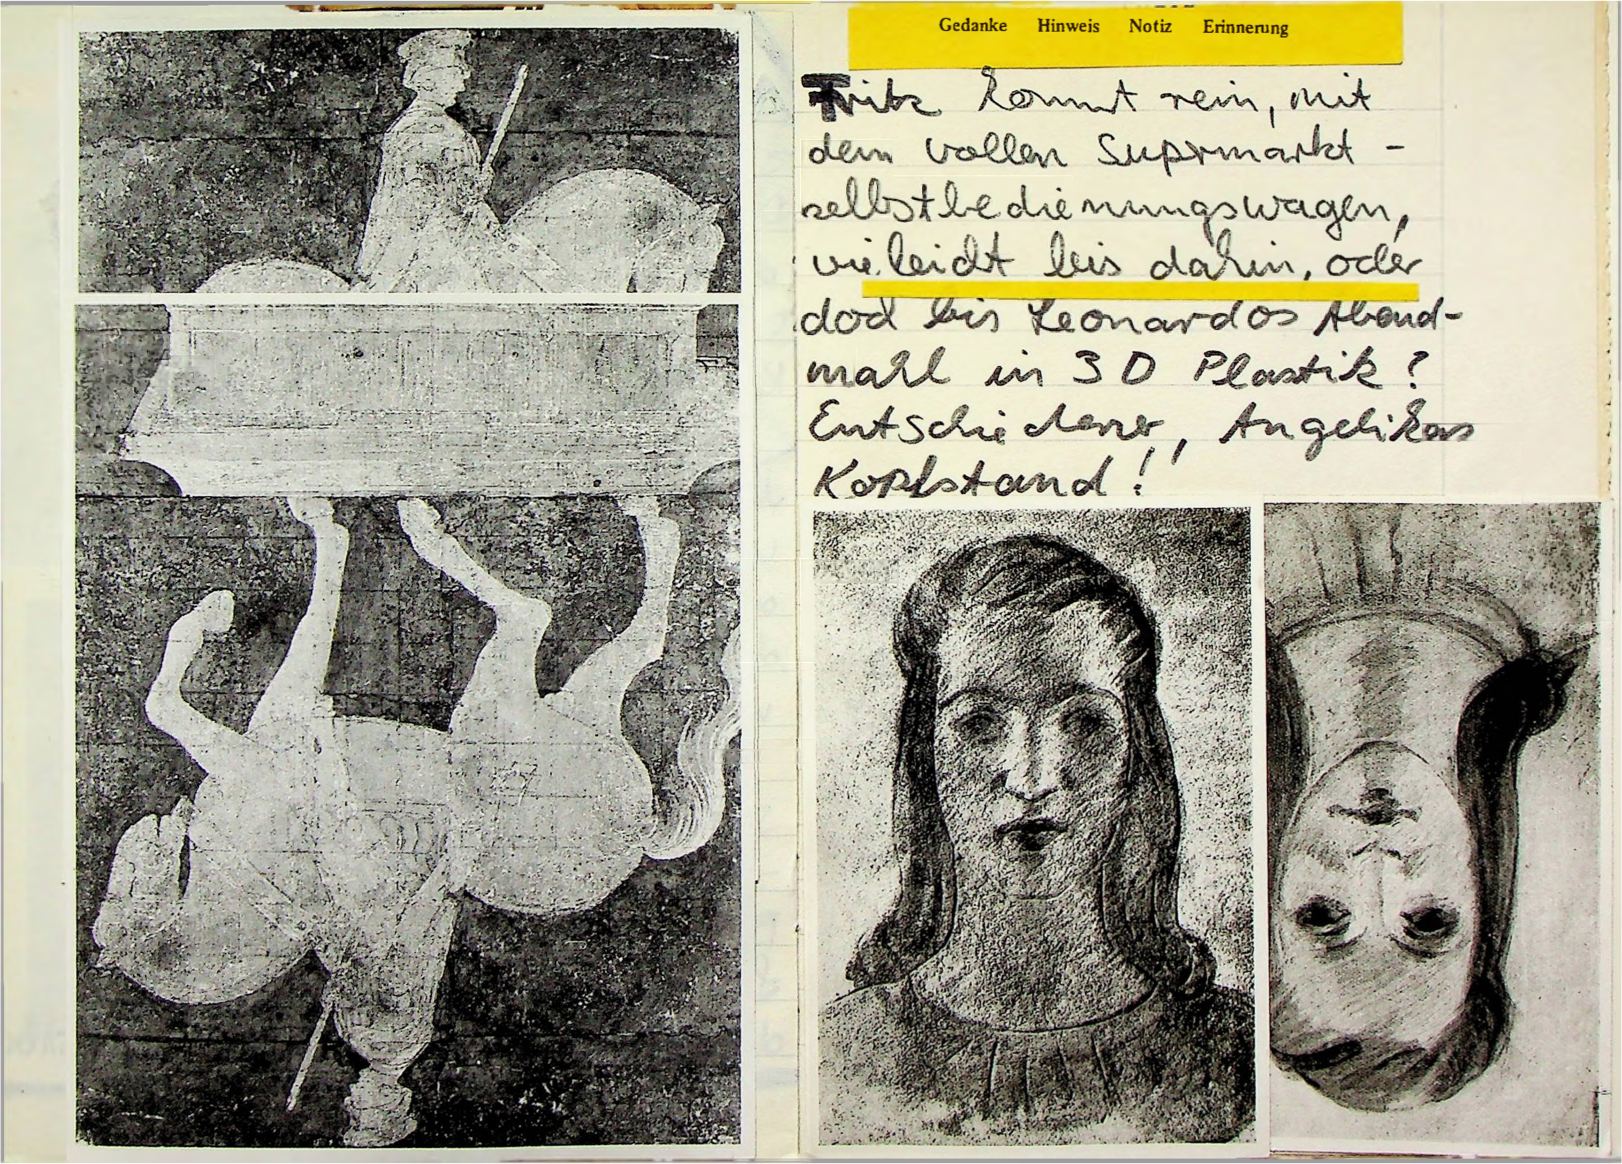 Gedanke Hinweis Notiz Erinnerung
Fritz kommt rein, mit
dem vollen Supermarkt -
selbstbedienungswagen,
vieleicht bis dahin, oder
doch bis Leonardos Abend-
mahl in 3D Plastik?
Entschiedener, Angelikas
Kopfstand!